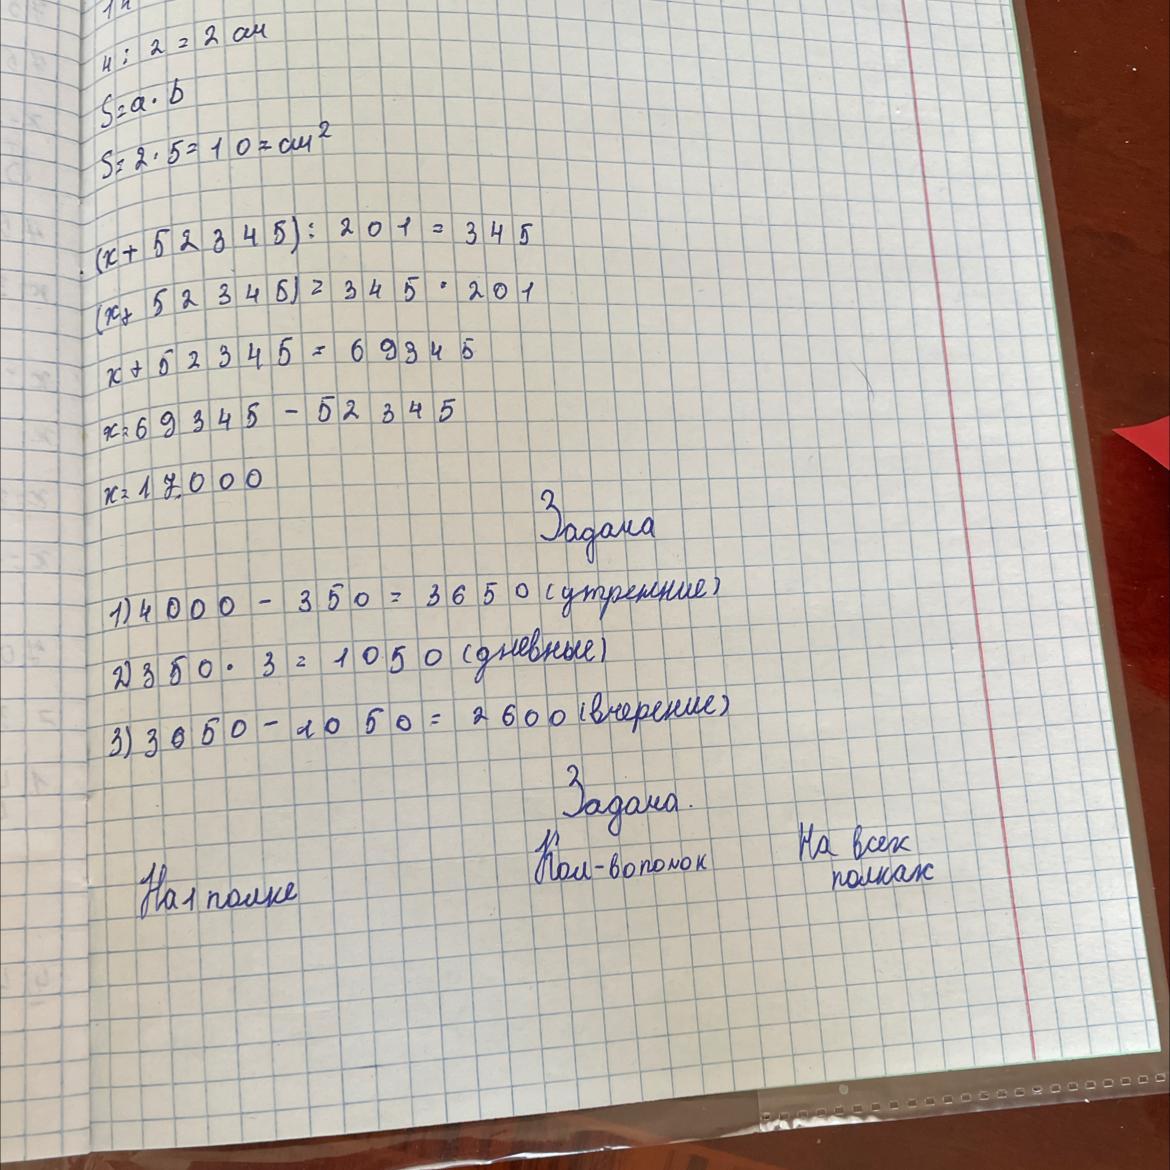 4 : 2 = 2 см
S=a·b
S=2·5=10=см²
(x+52345):201=345
(x+52345)=345·201
x+52345=69345
x=69345-52345
x=17000
Задача
1)4000-350=3650(утренние)
2)350·3=1050(дневные)
3)3650-1050=2600(вчерение)
Задача.
На 1 полке Кол-во полок На всех
полках